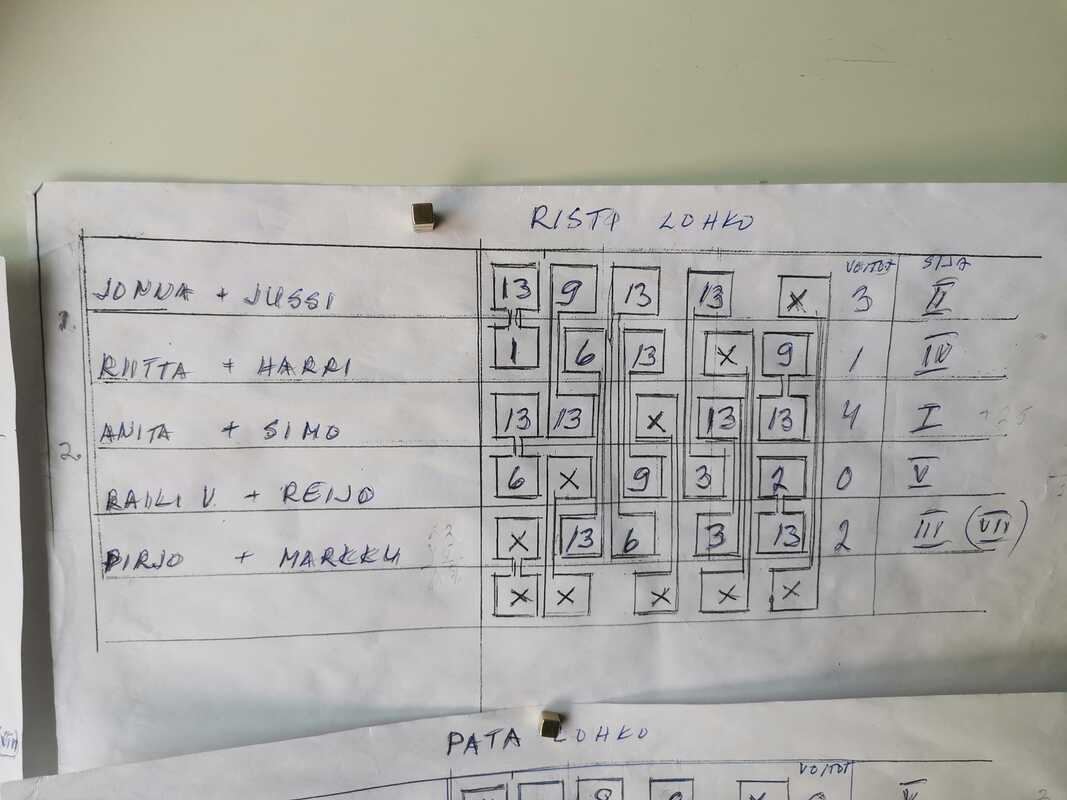 RISTI LOHKO
VOITOT SIJA
JONNA + JUSSI 13 9 13 13 X 3 II
1.
RIITTA + HARRI 1 6 13 X 9 1 IV
ANITA + SIMO 13 13 X 13 13 4 I
2.
RAILI V. + REIJO 6 X 9 3 2 0 V
PIRJO + MARKKU X 13 6 3 13 2 III (VII)
X X X X X
PATA LOHKO
VOITOT